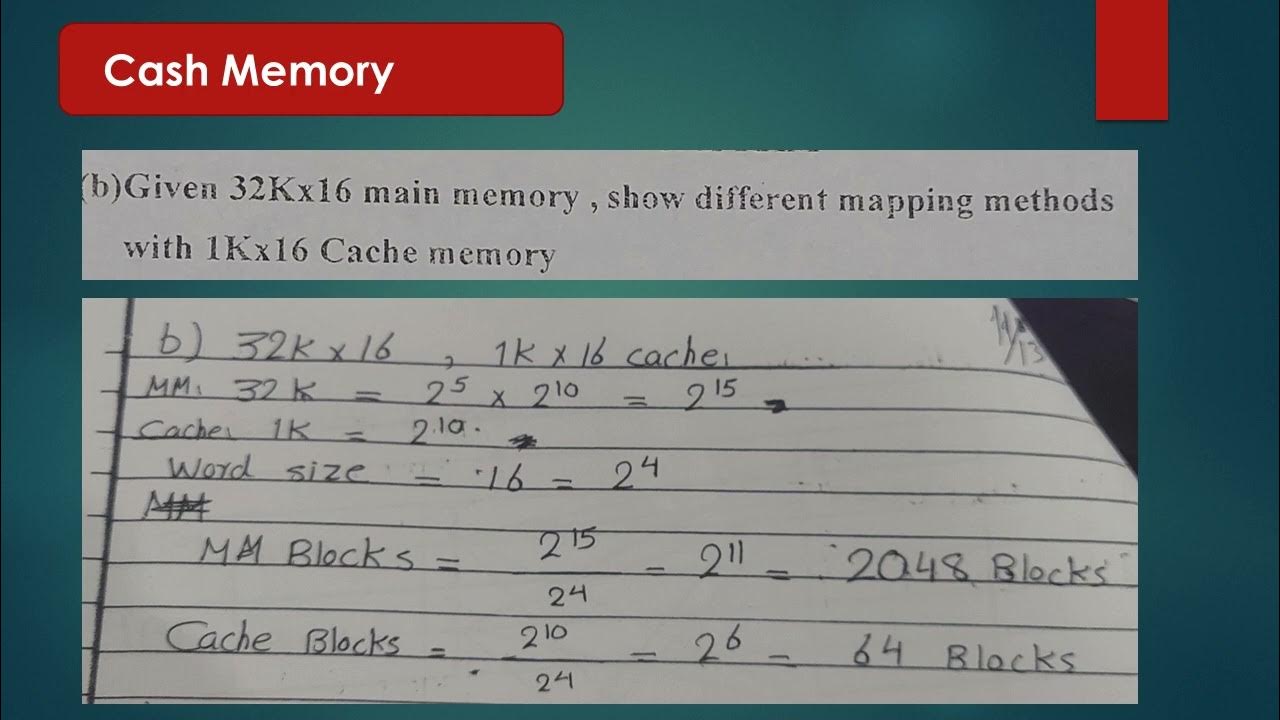 Cash Memory
(b)Given 32Kx16 main memory , show different mapping methods
with 1Kx16 Cache memory
b) 32K x 16 , 1K x 16 cache.
MM. 32 K = 2^5 x 2^10 = 2^15
Cache. 1K = 2^10.
Word size = 16 = 2^4
MM Blocks = 2^15 / 2^4 = 2^11 = 2048 Blocks
Cache Blocks = 2^10 / 2^4 = 2^6 = 64 Blocks